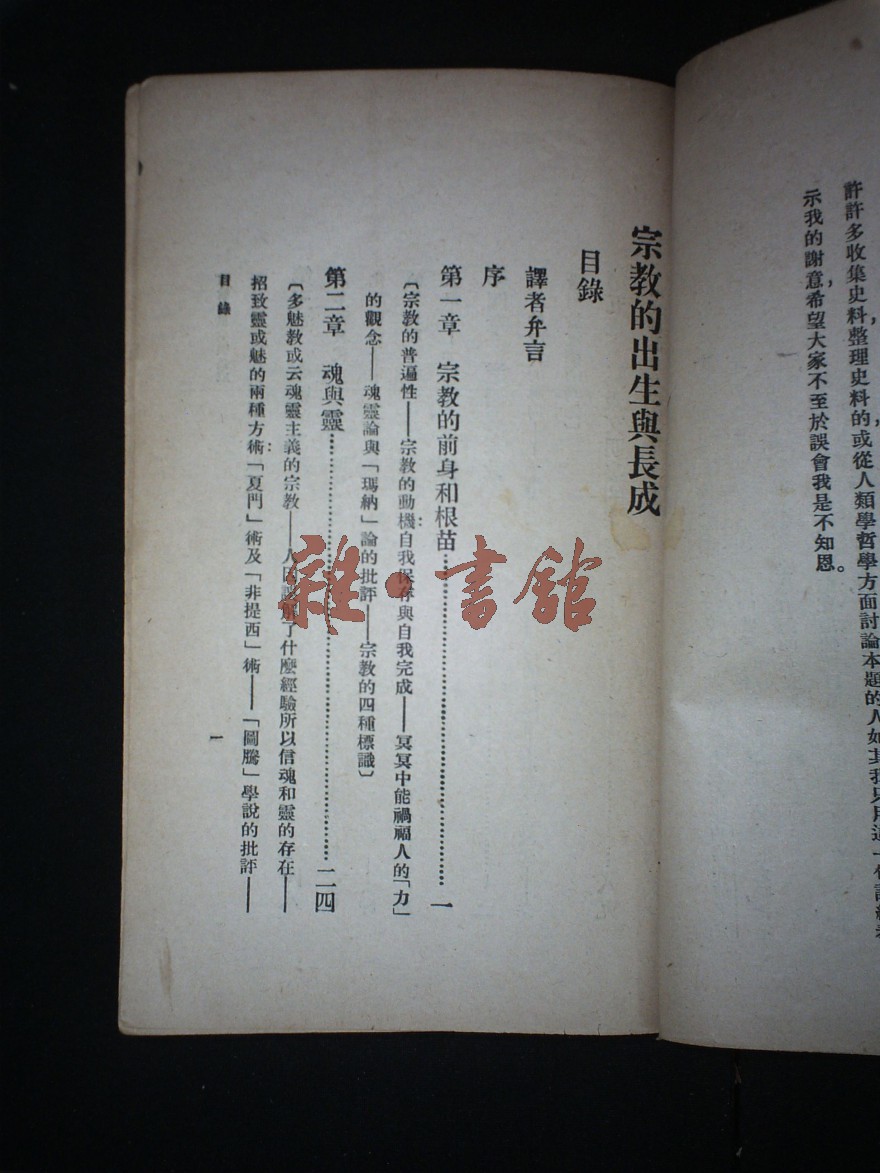 許許多收集史料,整理史料的,或從人類學哲學方面討論本題的人
示我的謝意,希望大家不至於誤會我是不知恩。
宗教的出生與長成
目錄
譯者弁言
序
第一章 宗教的前身和根苗……一
〔宗教的普遍性——宗教的動機:自我保存與自我完成——冥冥中能禍福人的「力」
的觀念——魂靈論與「瑪納」論的批評——宗教的四種標識〕
第二章 魂與靈……二四
〔多魅教或云魂靈主義的宗教——人因誤解了什麽經驗所以信魂和靈的存在——
招致靈或魅的兩種方術:「夏門」術及「非提西」術——「圖騰」學說的批評——
目錄
一
雜·書館